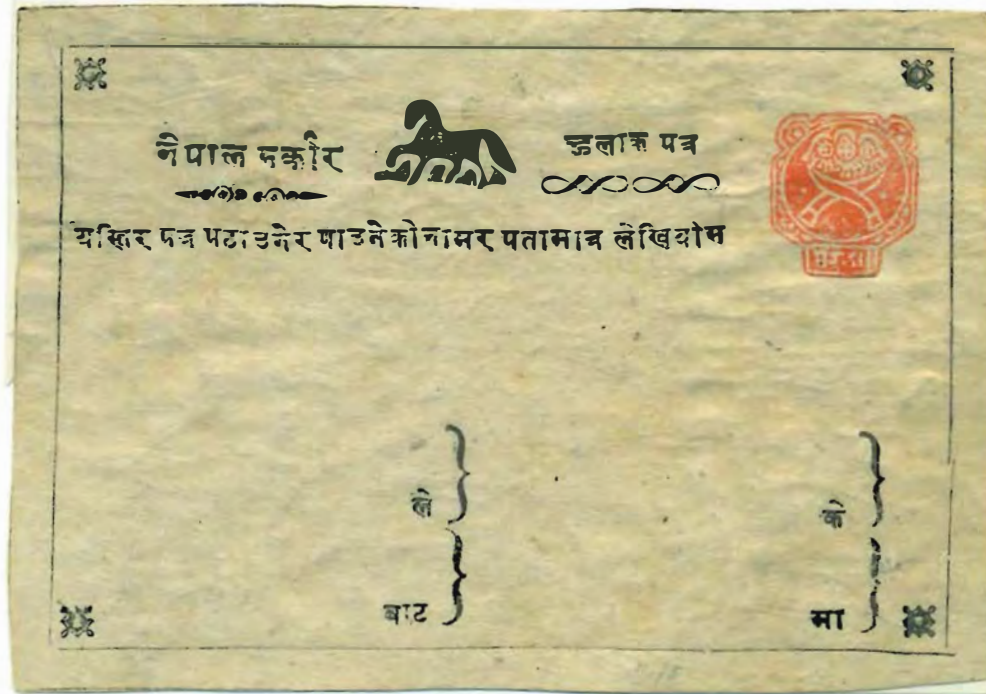 नेपाल दर्कार
हुलाक पत्र
यस्तिर पत्र पटाउनेर पाउनेको नामर पतामात्र लेखियोस
ले
के
बाट
मा